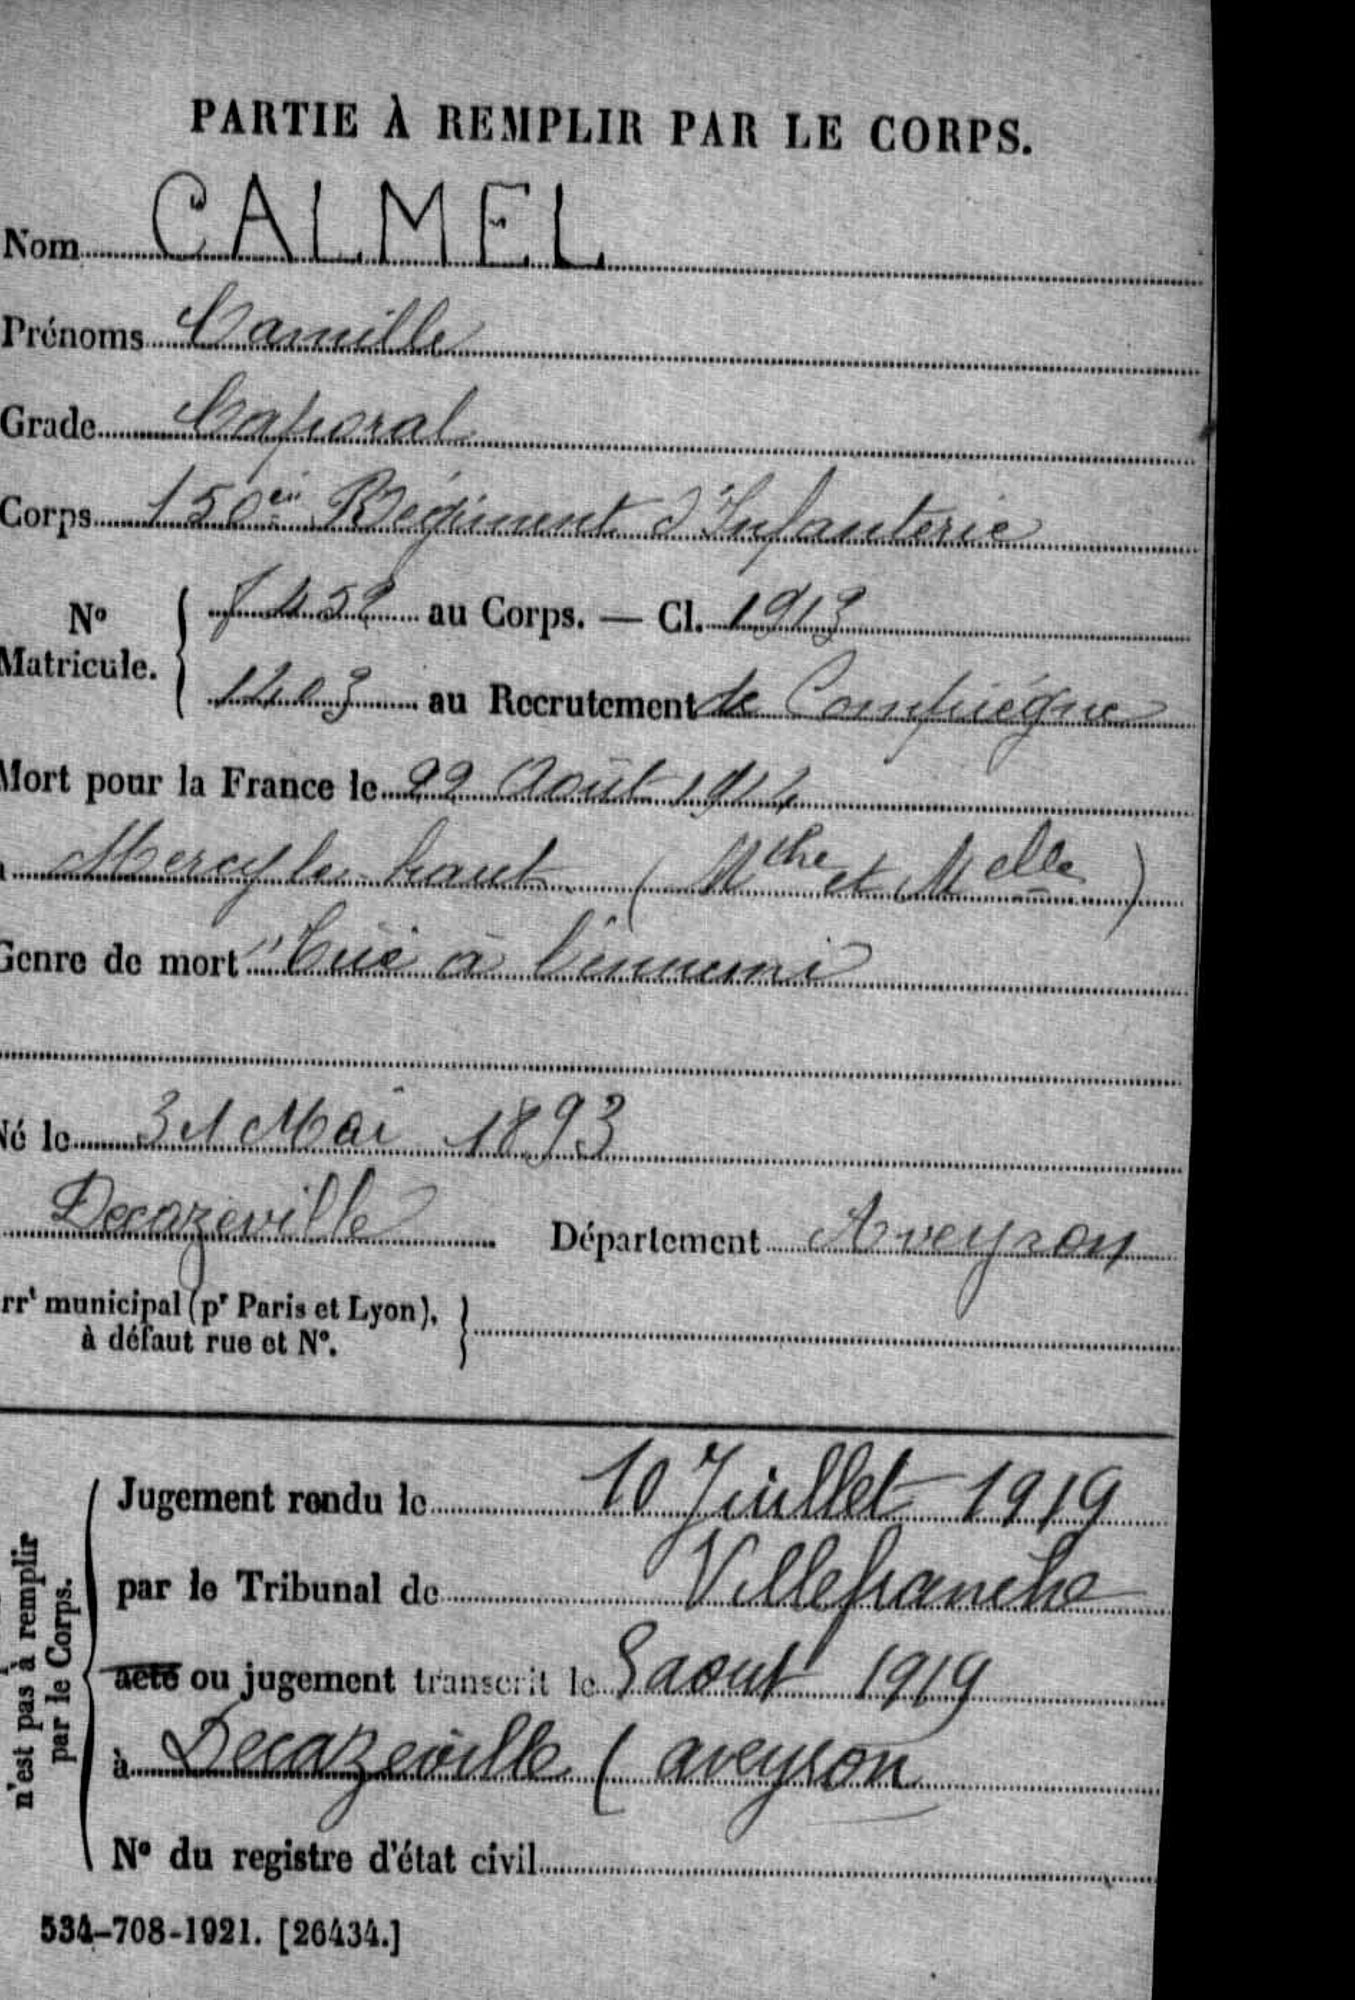 PARTIE À REMPLIR PAR LE CORPS.
Nom CALMEL
Prénoms Camille
Grade Caporal
Corps 150e Régiment d'Infanterie
No Maticule. { 7452 au Corps. — Cl. 1913
1203 au Recrutement de Compiègne
Mort pour la France le 22 Août 1914
Mercy le haut (Mthe et Melle)
Genre de mort Tué à l'ennemi
Né le 31 Mai 1893
Decazeville Département Aveyron
rrt municipal (pr Paris et Lyon), }
à défaut rue et No.
Jugement rendu le 10 Juillet 1919
par le Tribunal de Villefranche
acte ou jugement transcrit le 8 aout 1919
à Decazeville (aveyron
No du registre d'état civil
n'est pas à remplir
par le Corps.
534-708-1921. [26434.]